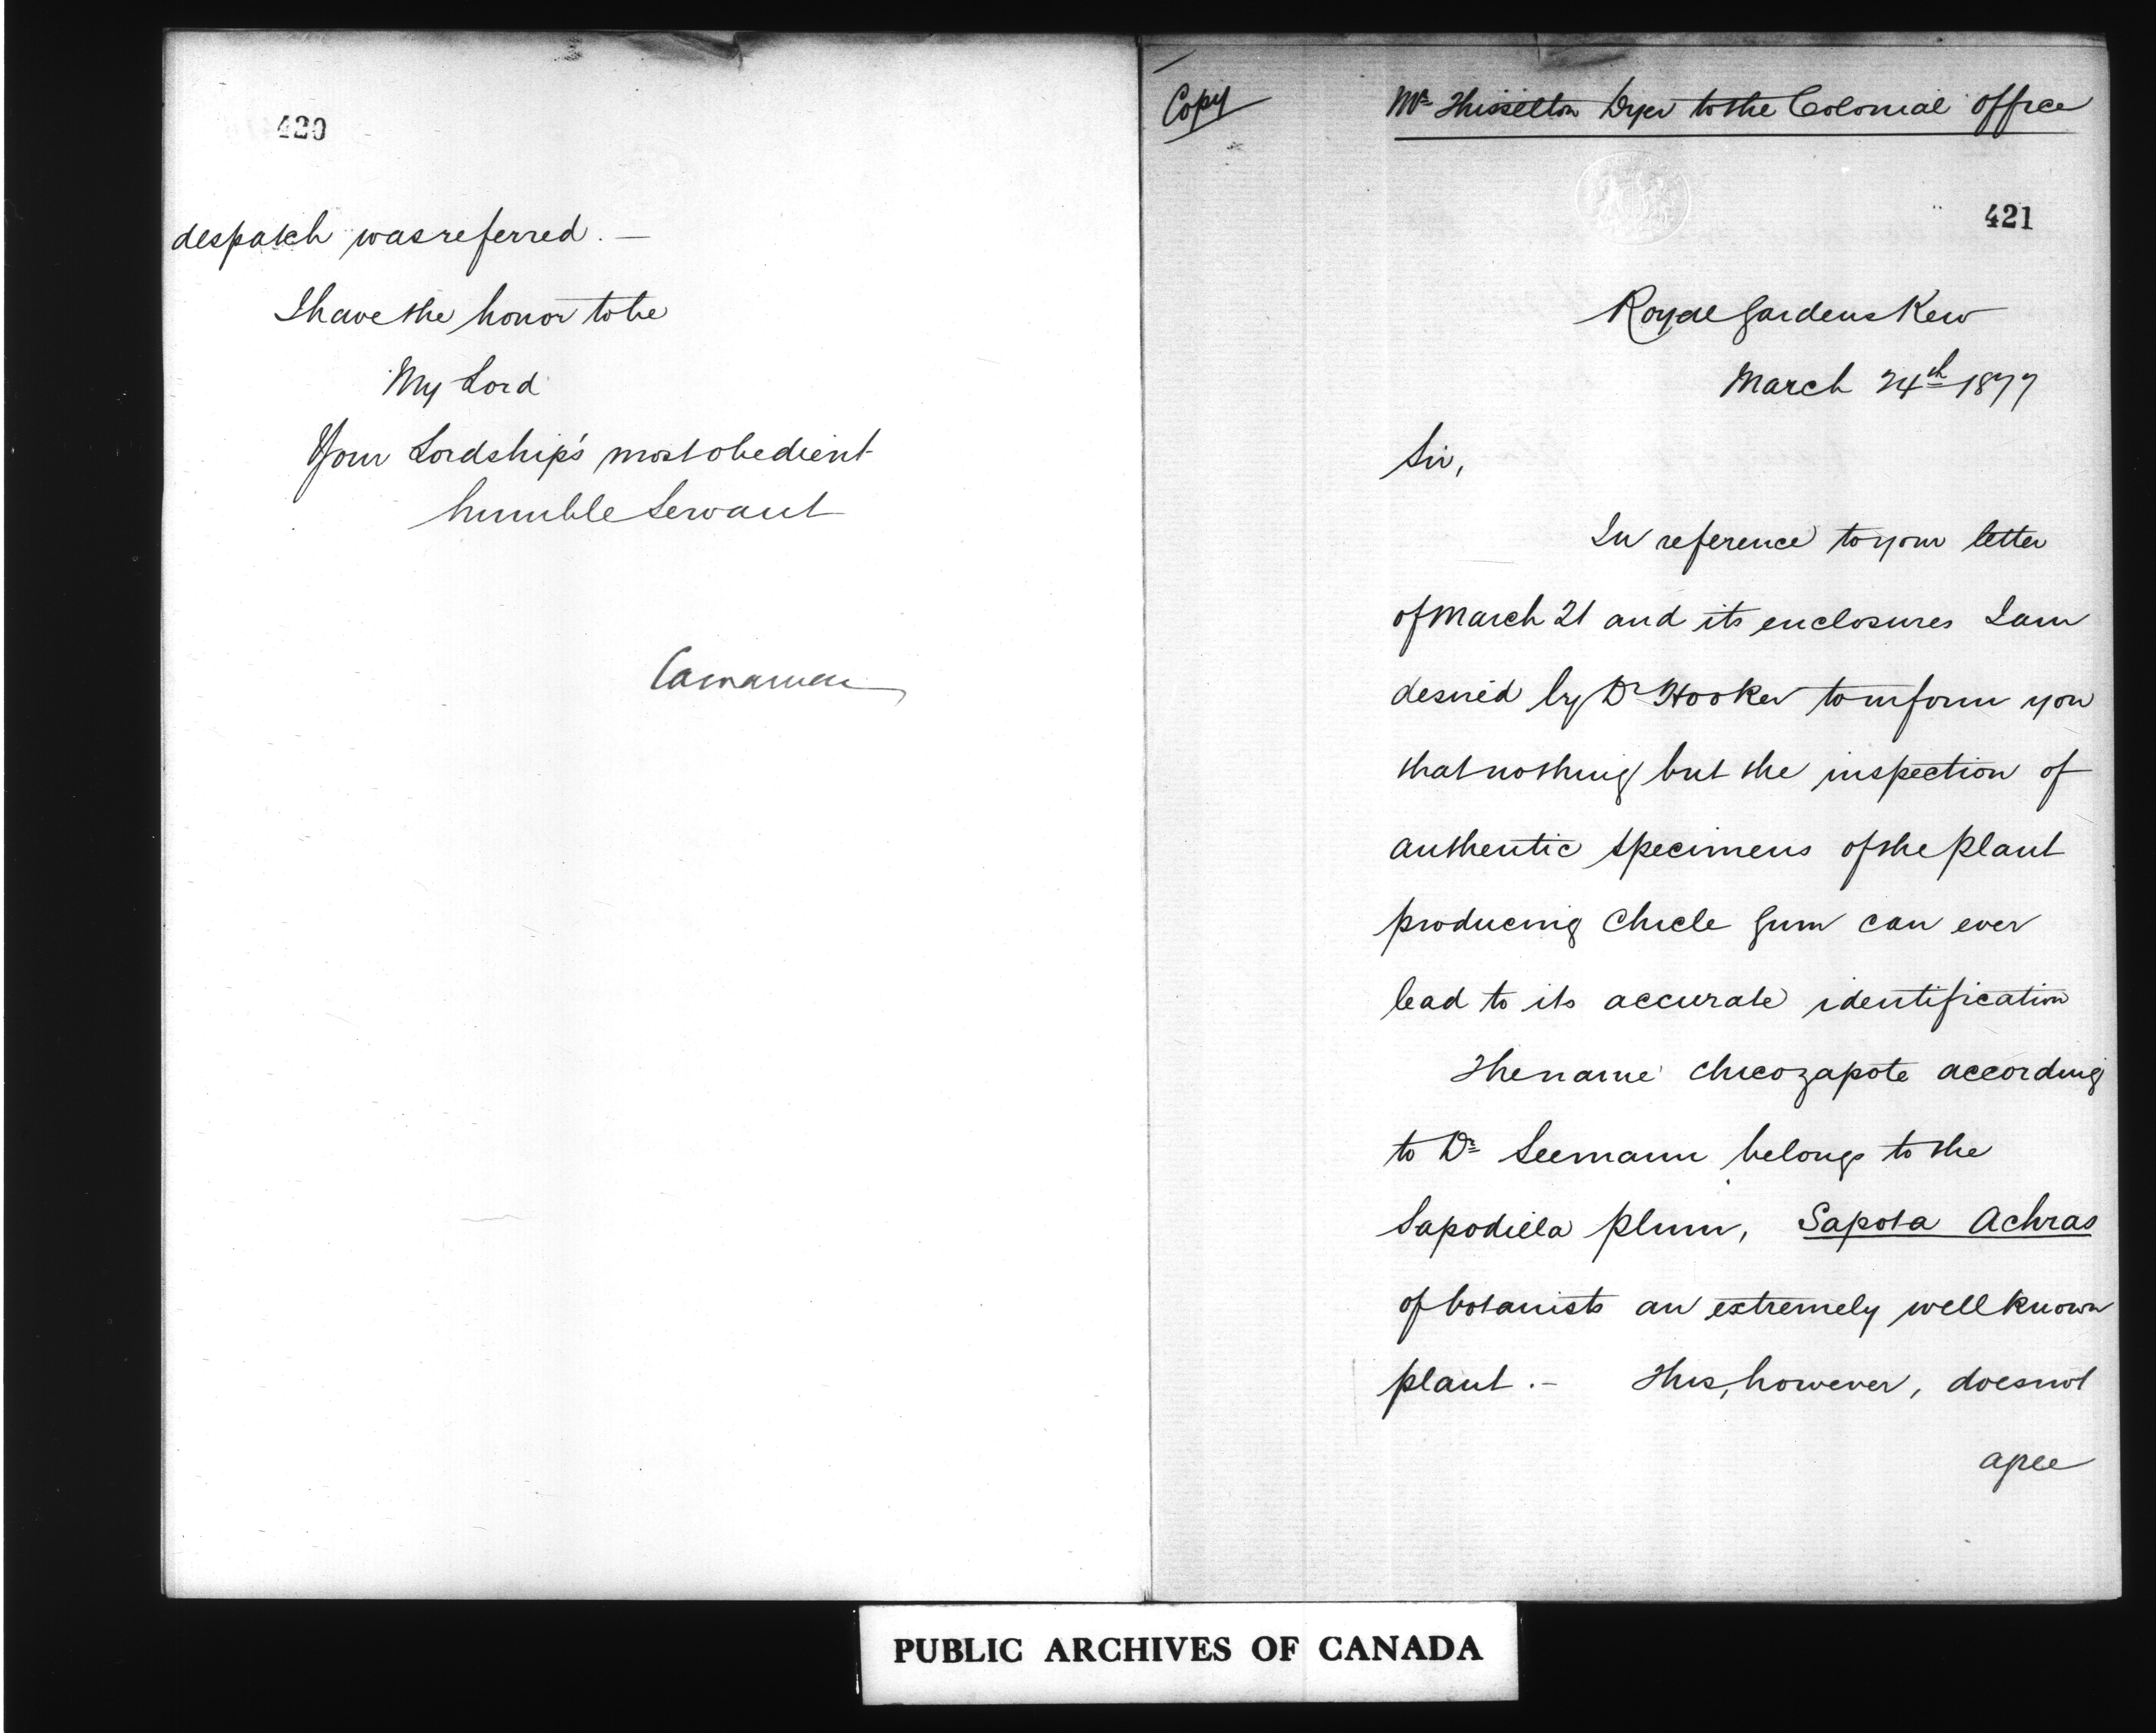 420
despatch was referred. —
I have the honor to be
My Lord
Your Lordship's most obedient
humble Servant
Carnarvon
Copy
Mr Thisselton Dyer to the Colonial Office
421
Royal Gardens Kew
March 24th 1877
Sir,
In reference to your letter
of March 21 and its enclosures I am
desired by Dr Hooker to inform you
that nothing but the inspection of
authentic specimens of the plant
producing Chicle Gum can ever
lead to its accurate identification
The name chicozapote according
to Dr Seemann belongs to the
Sapodilla plum, Sapota Achras
of botanists an extremely well known
plant. – This, however, does not
agree
PUBLIC ARCHIVES OF CANADA